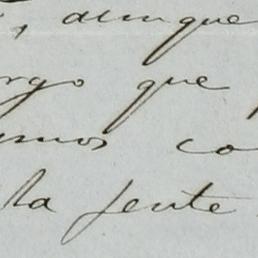 , aunque
rgo que
mos co
la jente